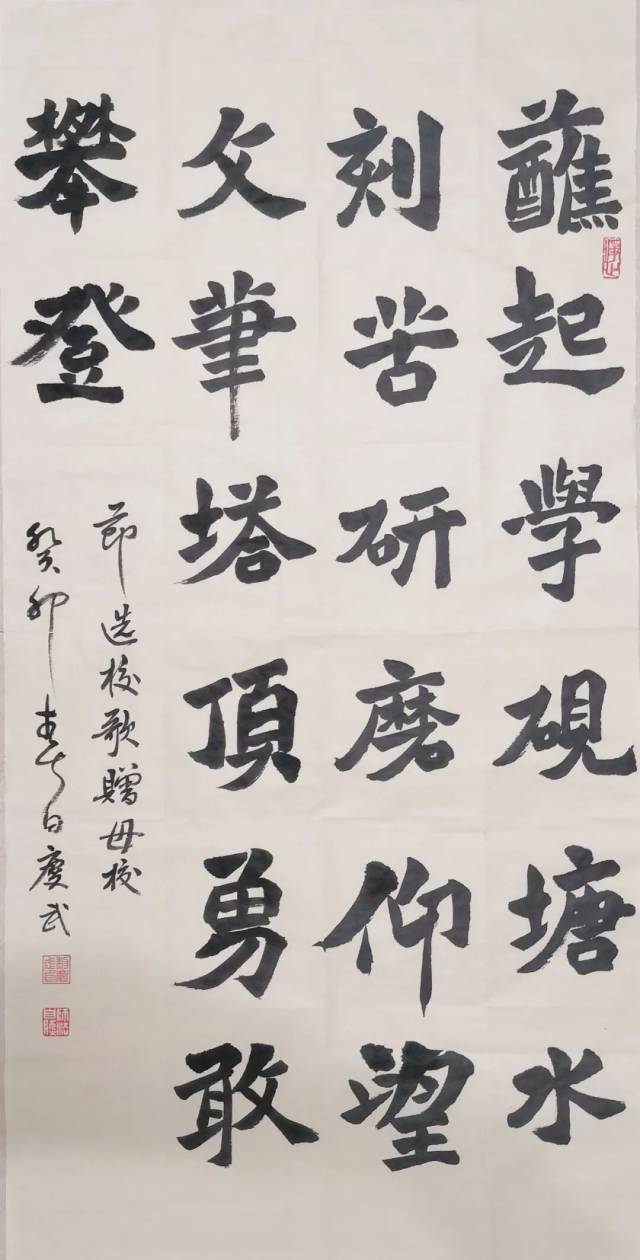 蘸起學硯塘水
刻苦研磨仰望
文筆塔頂勇敢
攀登
節选校歌贈母校
癸卯春日慶武